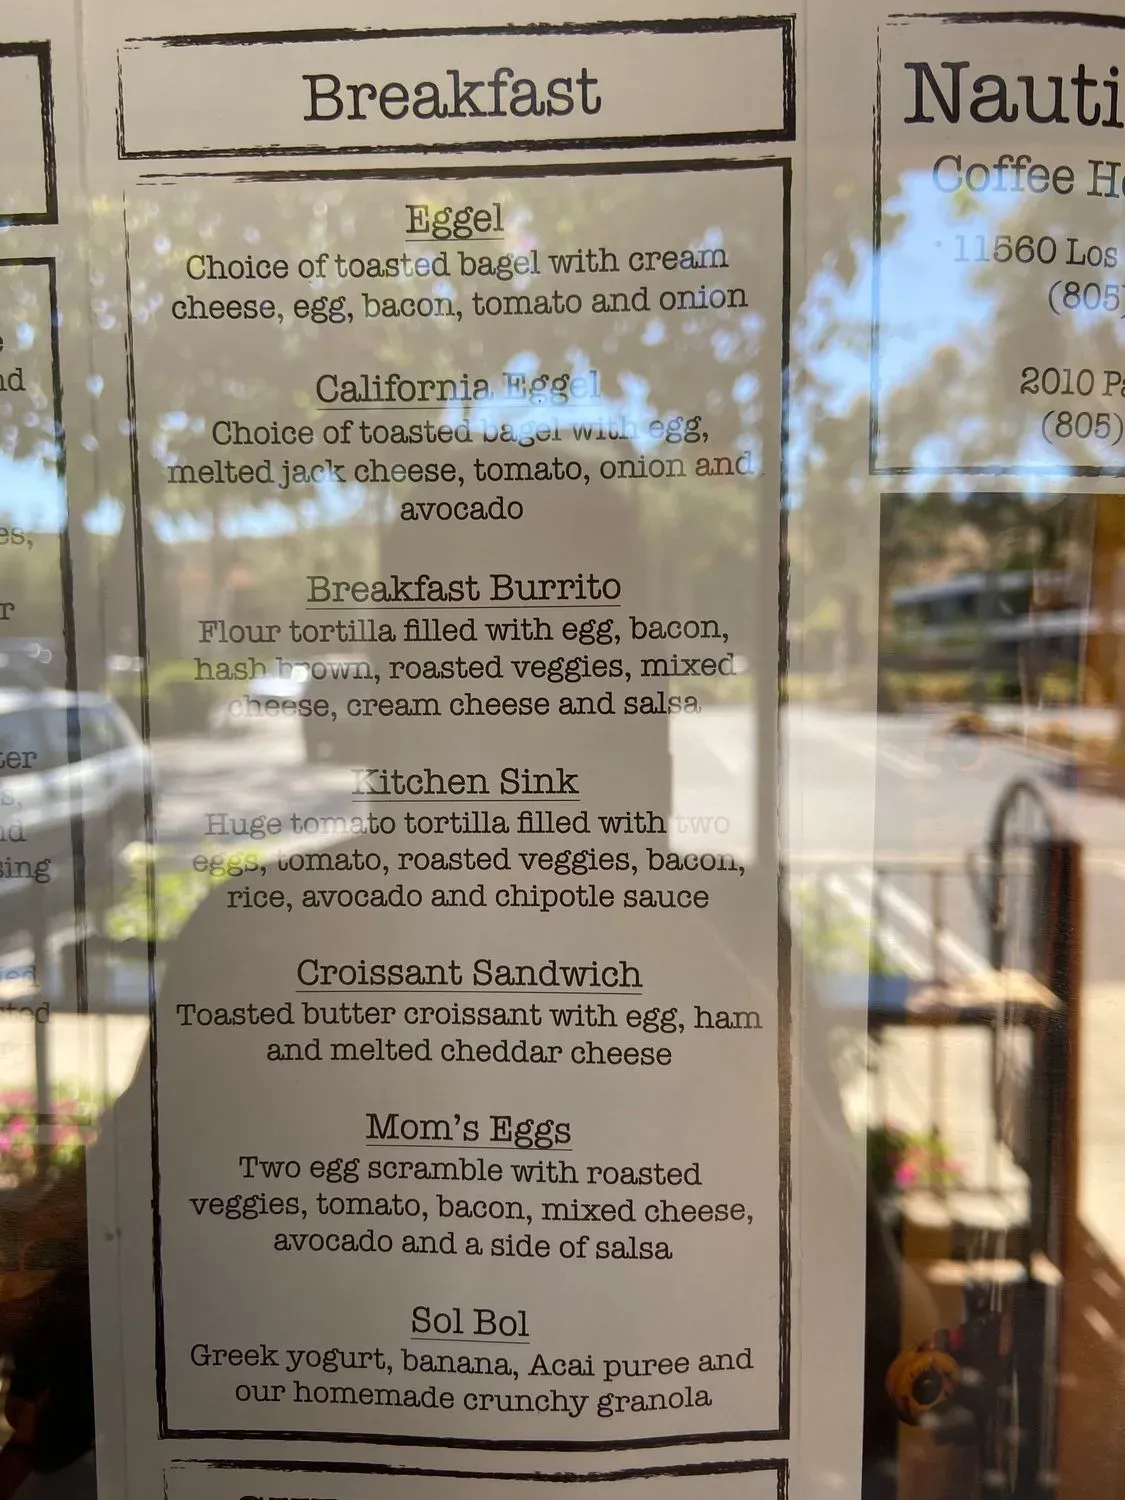 Breakfast
Eggel
Choice of toasted bagel with cream
cheese, egg, bacon, tomato and onion
California Eggel
Choice of toasted bagel with egg,
melted jack cheese, tomato, onion and
avocado
Breakfast Burrito
Flour tortilla filled with egg, bacon,
hash brown, roasted veggies, mixed
cheese, cream cheese and salsa
Kitchen Sink
Huge tomato tortilla filled with two
eggs, tomato, roasted veggies, bacon,
rice, avocado and chipotle sauce
Croissant Sandwich
Toasted butter croissant with egg, ham
and melted cheddar cheese
Mom's Eggs
Two egg scramble with roasted
veggies, tomato, bacon, mixed cheese,
avocado and a side of salsa
Sol Bol
Greek yogurt, banana, Acai puree and
our homemade crunchy granola
Nauti
Coffee H
11560 Los
(805)
2010 P
(805)